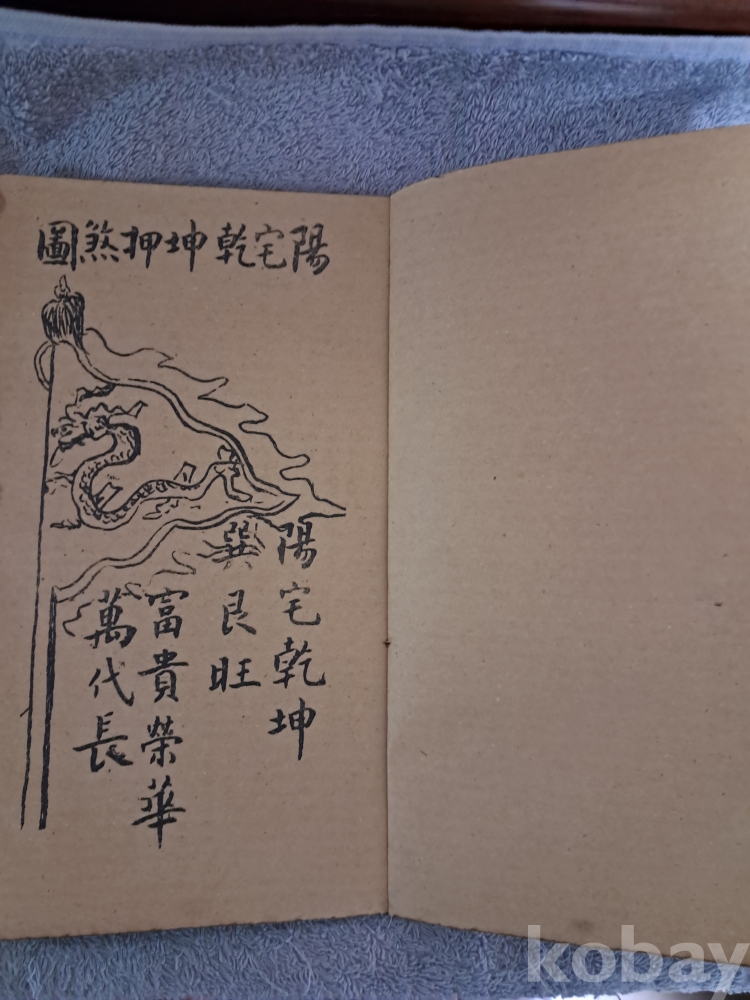 陽宅乾坤押煞圖
陽宅乾坤
巽艮旺
富貴榮華
萬代長
kobay